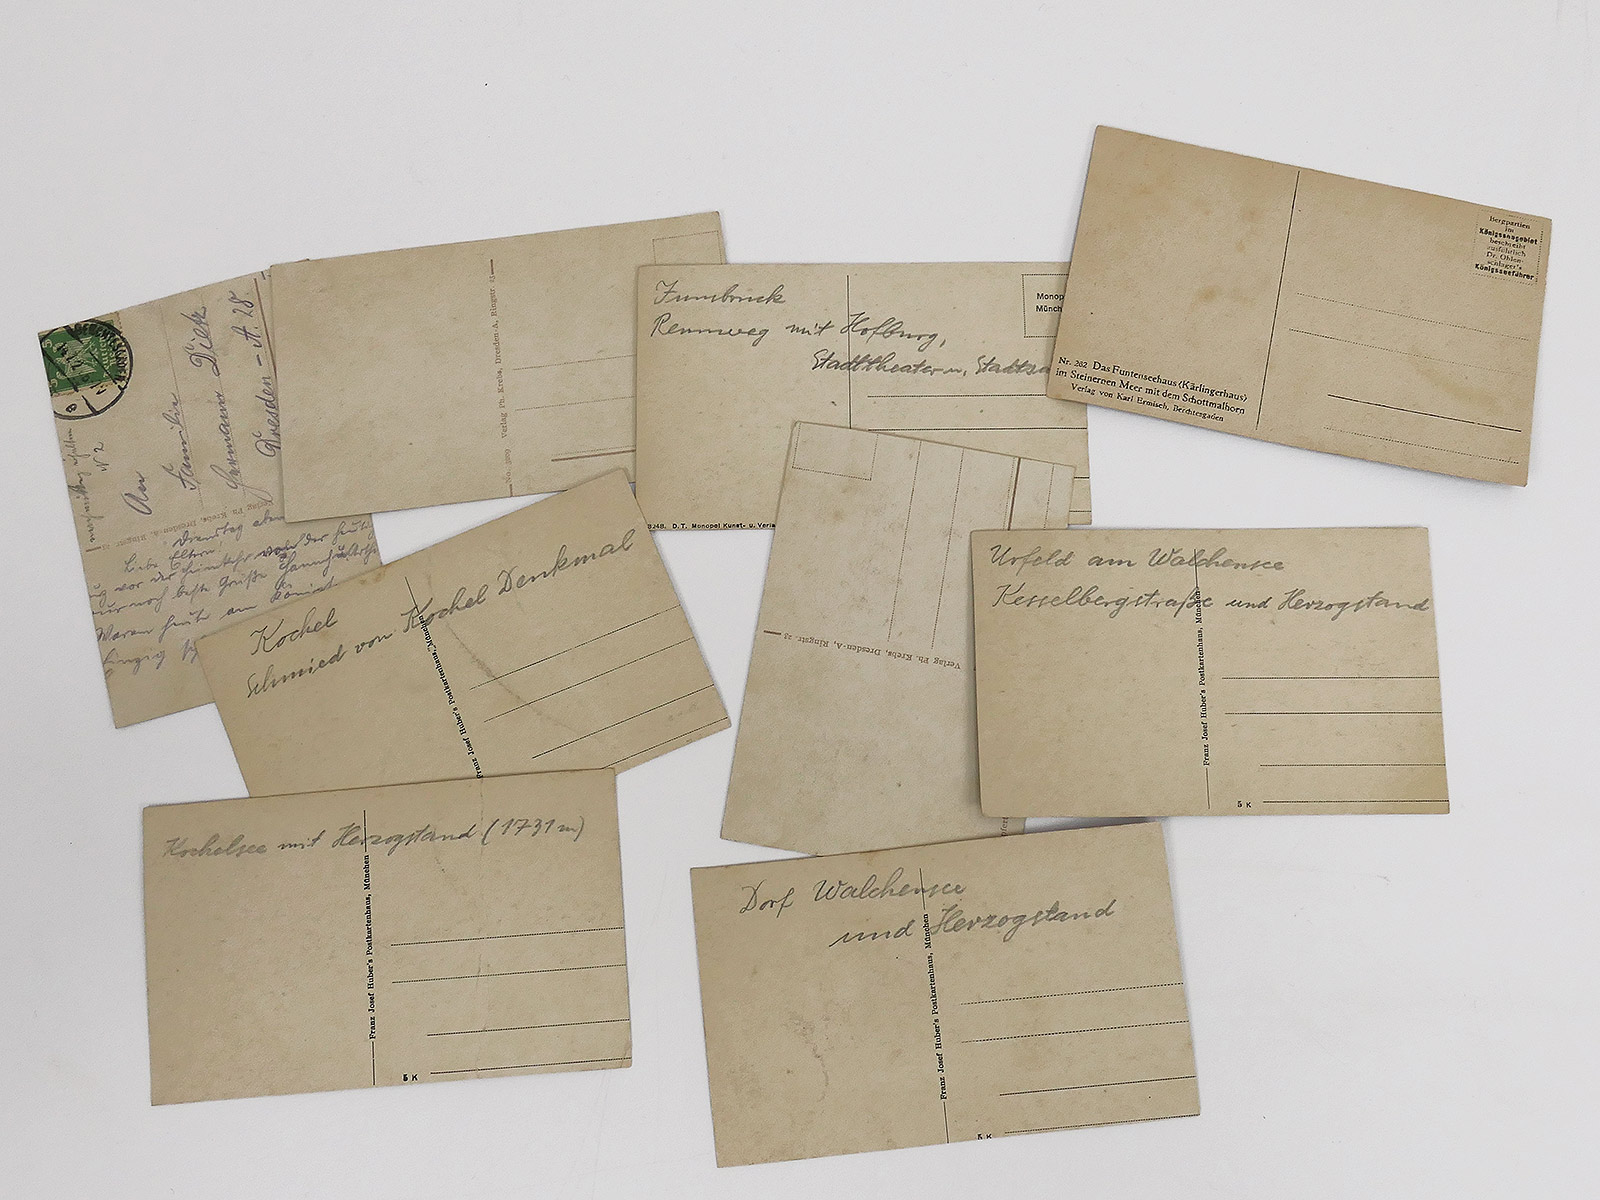 An
Familie
Hermann Dietze
Dresden-A. 28.
Verlag Ph. Krebs, Dresden-A. Ringstr. 23
Dienstag
Liebe Eltern!
vor der Heimkehr von der
nur noch beste Grüße
Waren heute am
No. Verlag Ph. Krebs, Dresden-A. Ringstr. 23
Innsbruck
Rennweg mit Hofburg,
Stadttheater u. Stadtsa
Monop
Münch
D. T. Monopol Kunst- u. Verla
Bergpartien
im
Königsseegebiet
beschreibt
ausführlich
Dr. Ohlen-
schlager's
Königsseeführer.
Nr. 282 Das Funtenseehaus (Kärlingerhaus)
im Steinernen Meer mit dem Schottmalhorn
Verlag von Karl Ermisch, Berchtesgaden
Kochel
Schmied von Kochel Denkmal
Franz Josef Huber's Postkartenhaus, München
Verlag Ph. Krebs, Dresden-A, Ringstr. 23
Urfeld am Walchensee
Kesselbergstraße und Herzogstand
Franz Josef Huber's Postkartenhaus, München
5 K
Kochelsee mit Herzogstand (1731 m)
Franz Josef Huber's Postkartenhaus, München
5 K
Dorf Walchensee
und Herzogstand
Franz Josef Huber's Postkartenhaus, München
5 K